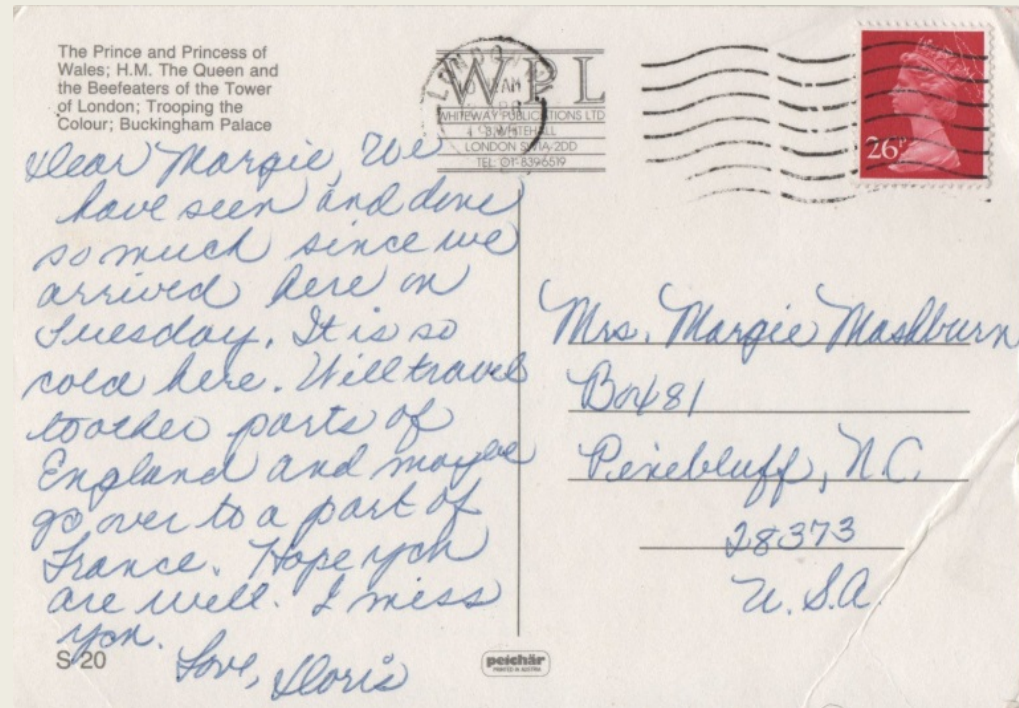 The Prince and Princess of
Wales; H.M. The Queen and
the Beefeaters of the Tower
of London; Trooping the
Colour; Buckingham Palace
WPL
WHITEWAY PUBLICATIONS LTD
WHITEHALL
LONDON SW1A 2DD
TEL: 01-8396519
LONDON
AM
26P
Dear Margie, We
have seen and done
so much since we
arrived here on
Tuesday. It is so
cold here. Will travel
to other parts of
England and maybe
go over to a part of
France. Hope you
are well. I miss
you.
Love, Doris
Mrs. Margie Mashburn
Box 81
Pinebluff, N.C.
28373
U.S.A.
S-20
peichär
PRINTED IN AUSTRIA